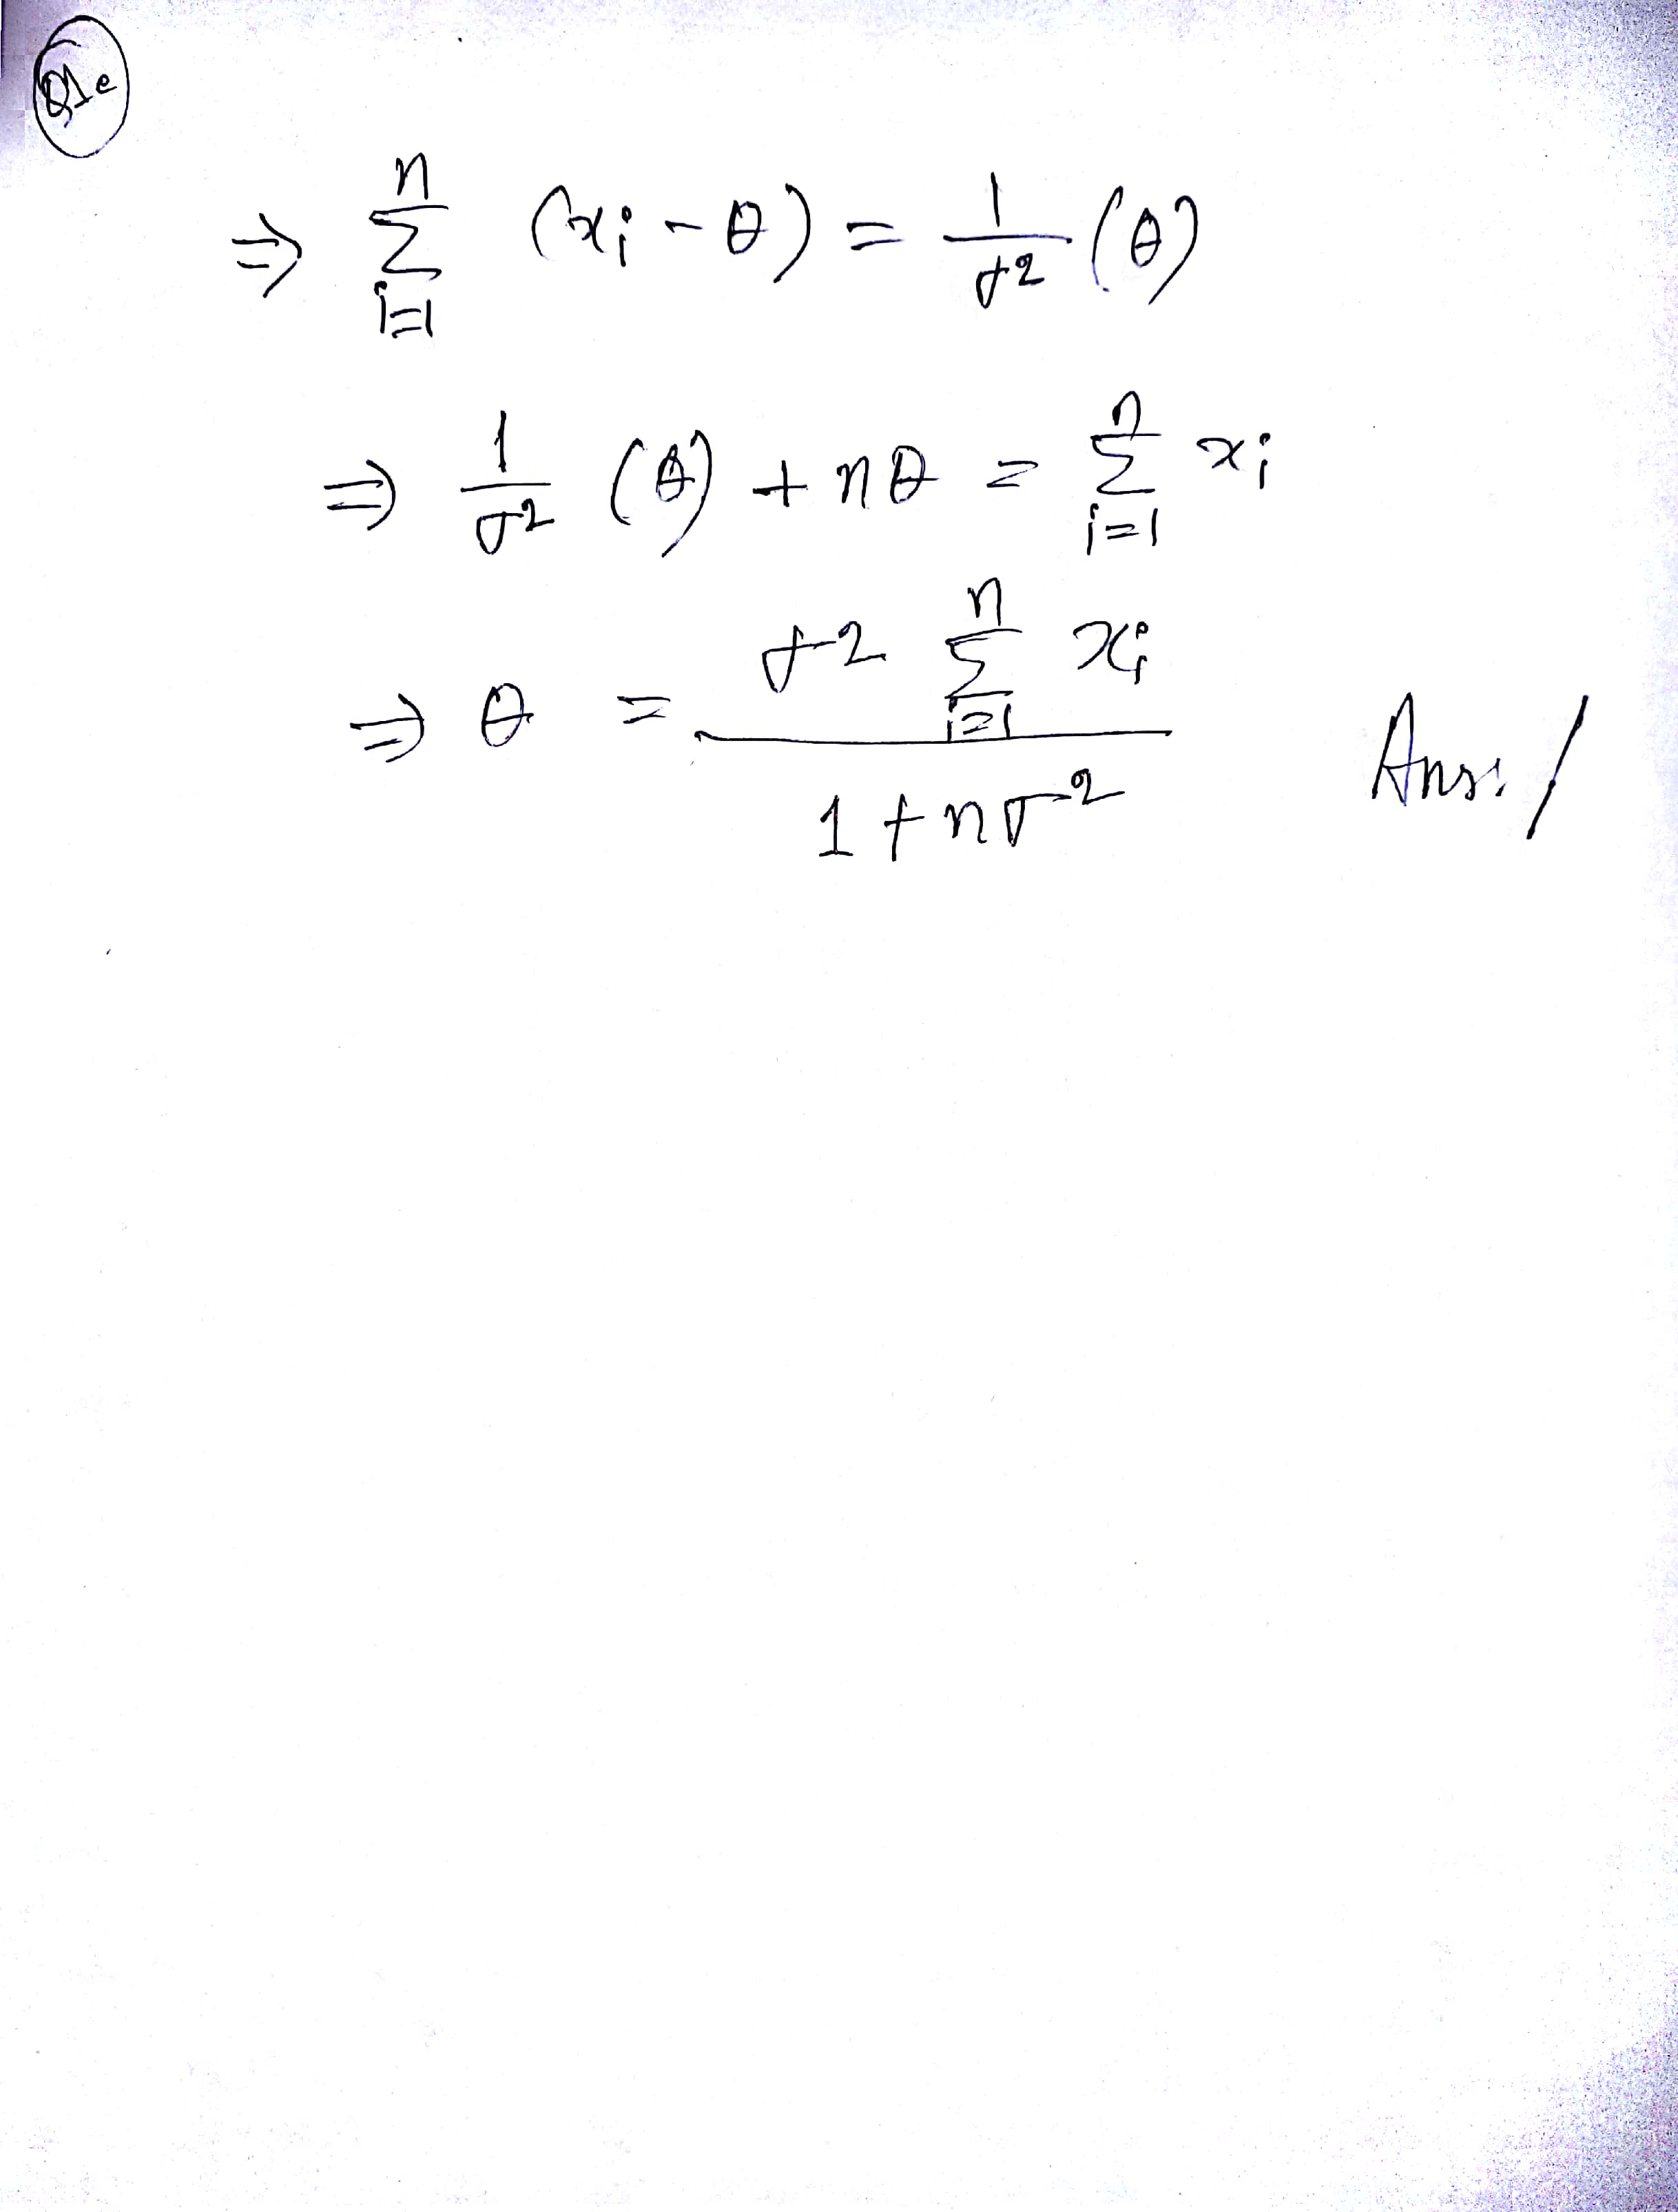 Q1e
⇒ n∑i=1 (xi - θ) = 1/σ2 (θ)
⇒ 1/σ2 (θ) + nθ = n∑i=1 xi
⇒ θ = σ2 n∑i=1 xi / 1 + nσ2 Ans:/